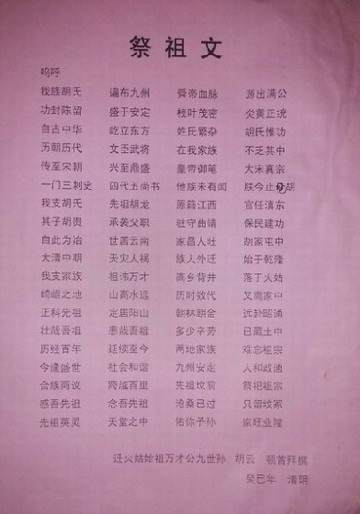 祭祖文
呜呼
我族胡氏 遍布九州 舜帝血脉 源出满公
功封陈留 盛于安定 枝叶茂密 炎黄正统
自古中华 屹立东方 姓氏繁杂 胡氏惟功
历朝历代 文丞武将 在我家族 不乏其中
传至宋朝 兴至鼎盛 皇帝御笔 大宋真宗
一门三刺史 四代五尚书 他族未有闻 朕今止胡
我支胡氏 先祖胡龙 原籍江西 官任滇东
其子胡贵 承袭父职 驻守曲靖 保民建功
自此为始 世居云南 家昌人壮 胡家屯中
大清中期 天灾人祸 族人外迁 始于乾隆
我支家族 祖讳万才 离乡背井 落于火姑
崎岖之地 山高水远 历时数代 又离家中
正科元祖 定居阳山 朝林朝金 近卧昭通
壮哉吾祖 悲哉吾祖 多少辛劳 已藏土中
历经百年 延续至今 两地家族 难忘祖宗
今逢盛世 社会和谐 九州安定 人和政通
合族商议 跨越百里 先祖坟前 祭祀祖宗
感吾先祖 念吾先祖 沧桑已过 只留坟冢
先祖英灵 天堂之中 佑你子孙 家旺业隆
迁火姑始祖万才公九世孙 胡云 顿首拜撰
癸巳年 清明